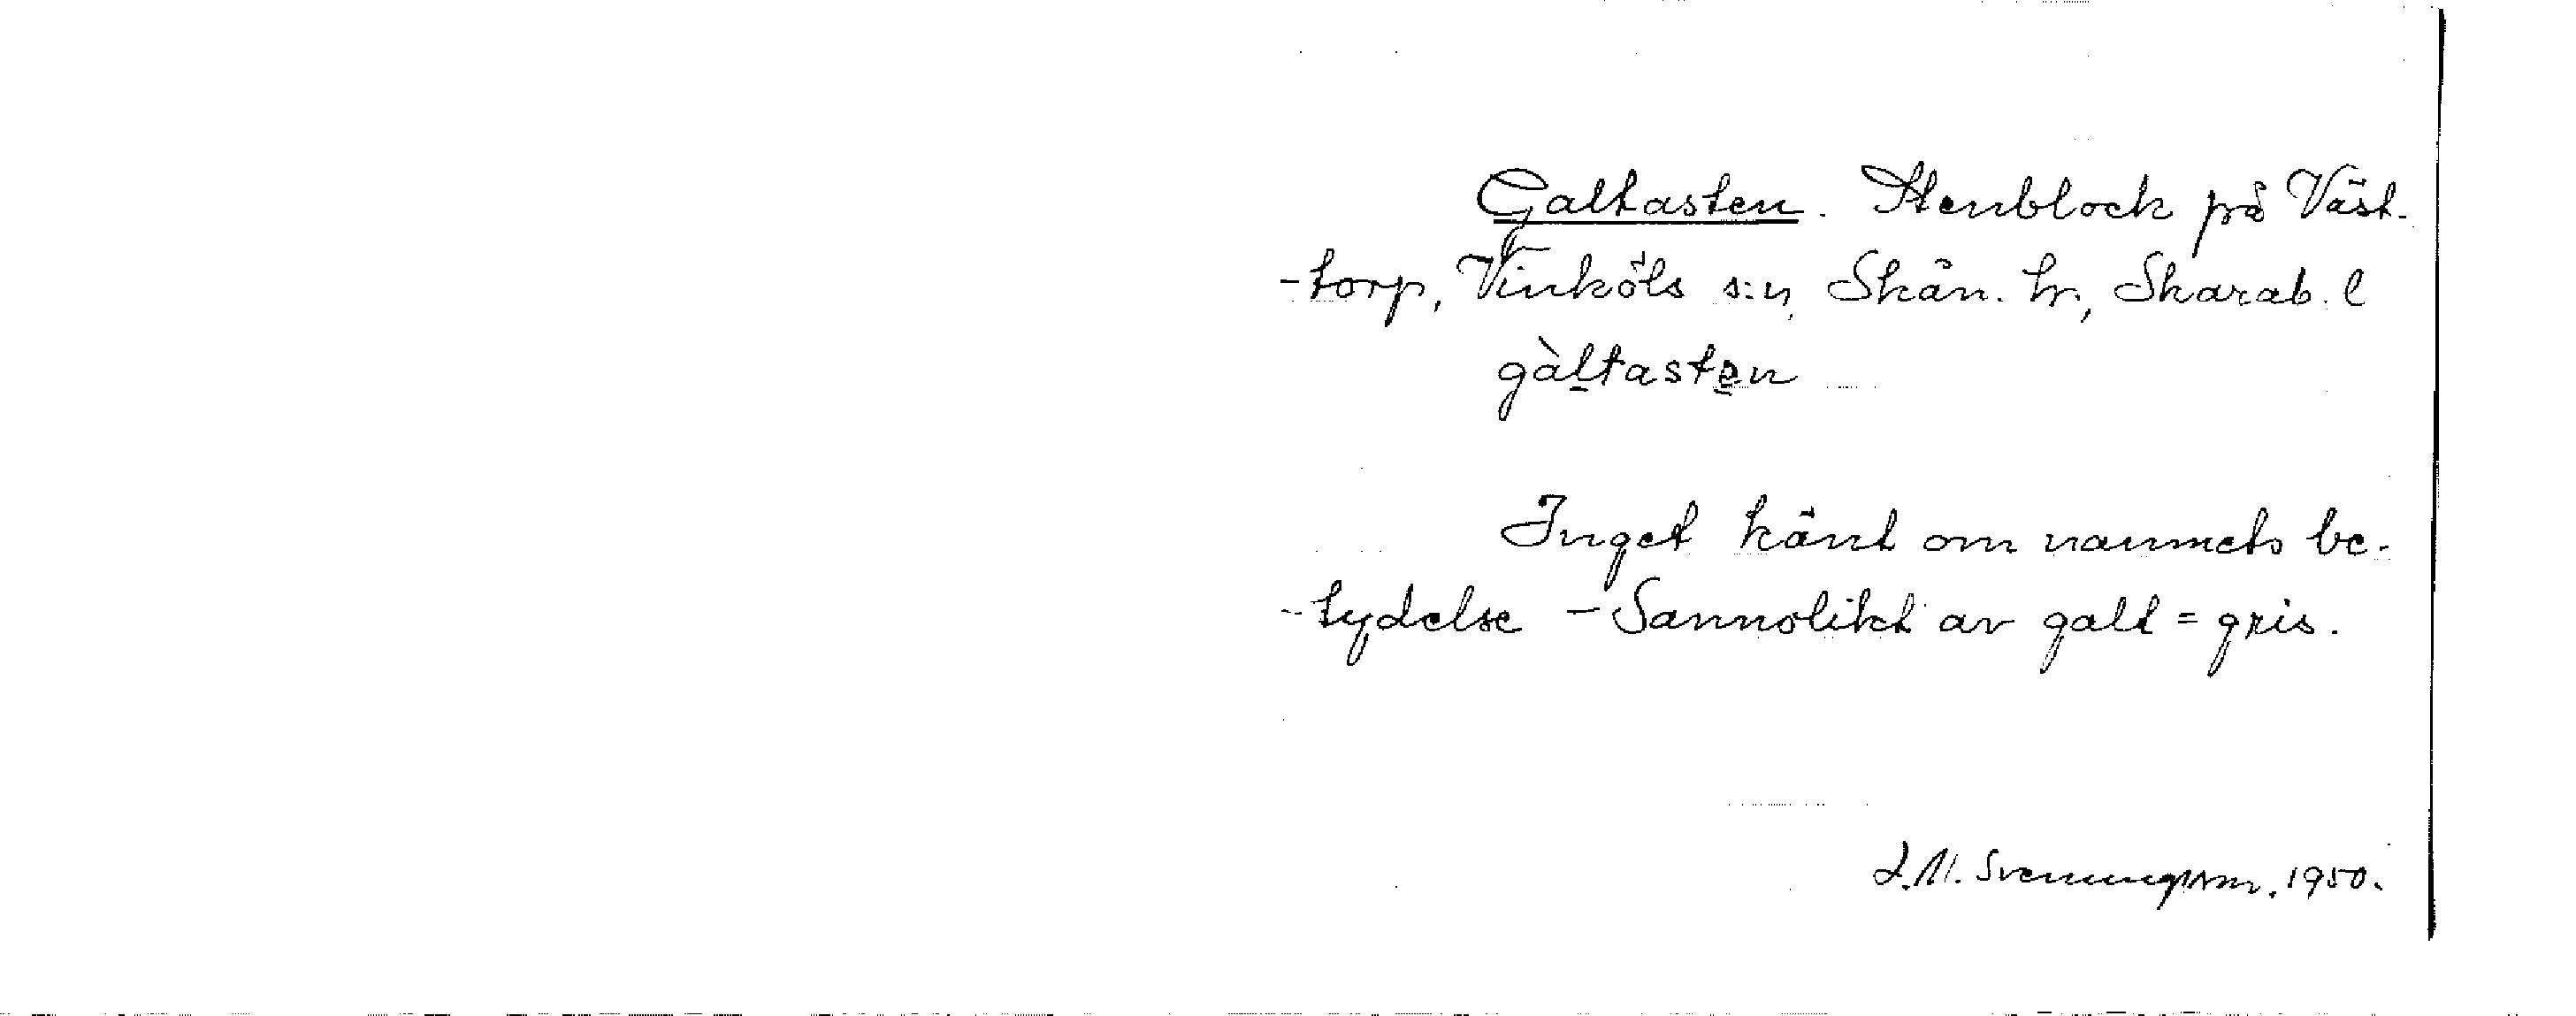 Galtasten. Stenblock på Väst-
-torp, Vinköls s:n, Skån. hr, Skarab. l
gàltasten
Inget känt om namnets be-
-tydelse - Sannolikt av galt = gris.
Svenningsson. 1950.